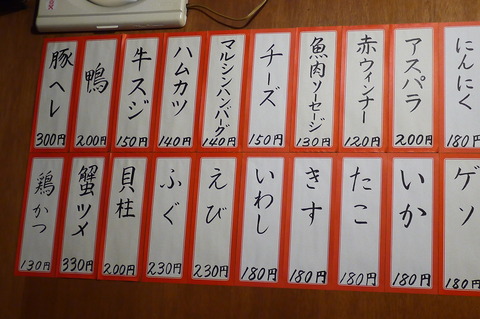 にんにく
180円
アスパラ
200円
赤ウィンナー
120円
魚肉ソーセージ
130円
チーズ
150円
マルシンハンバーグ
140円
ハムカツ
140円
牛スジ
150円
鴨
200円
豚ヘレ
300円
ゲソ
180円
いか
180円
たこ
180円
きす
180円
いわし
180円
えび
230円
ふぐ
230円
貝柱
200円
蟹ツメ
330円
鶏かつ
130円